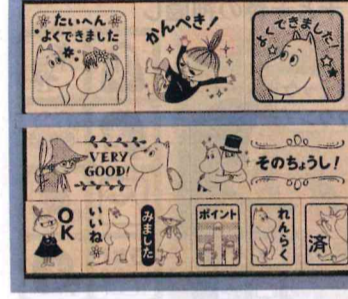 たいへん
よくできました
かんぺき!
よくできました!
VERY
GOOD!
そのちょうし!
OK
いいね
みました
ポイント
れんらく
済